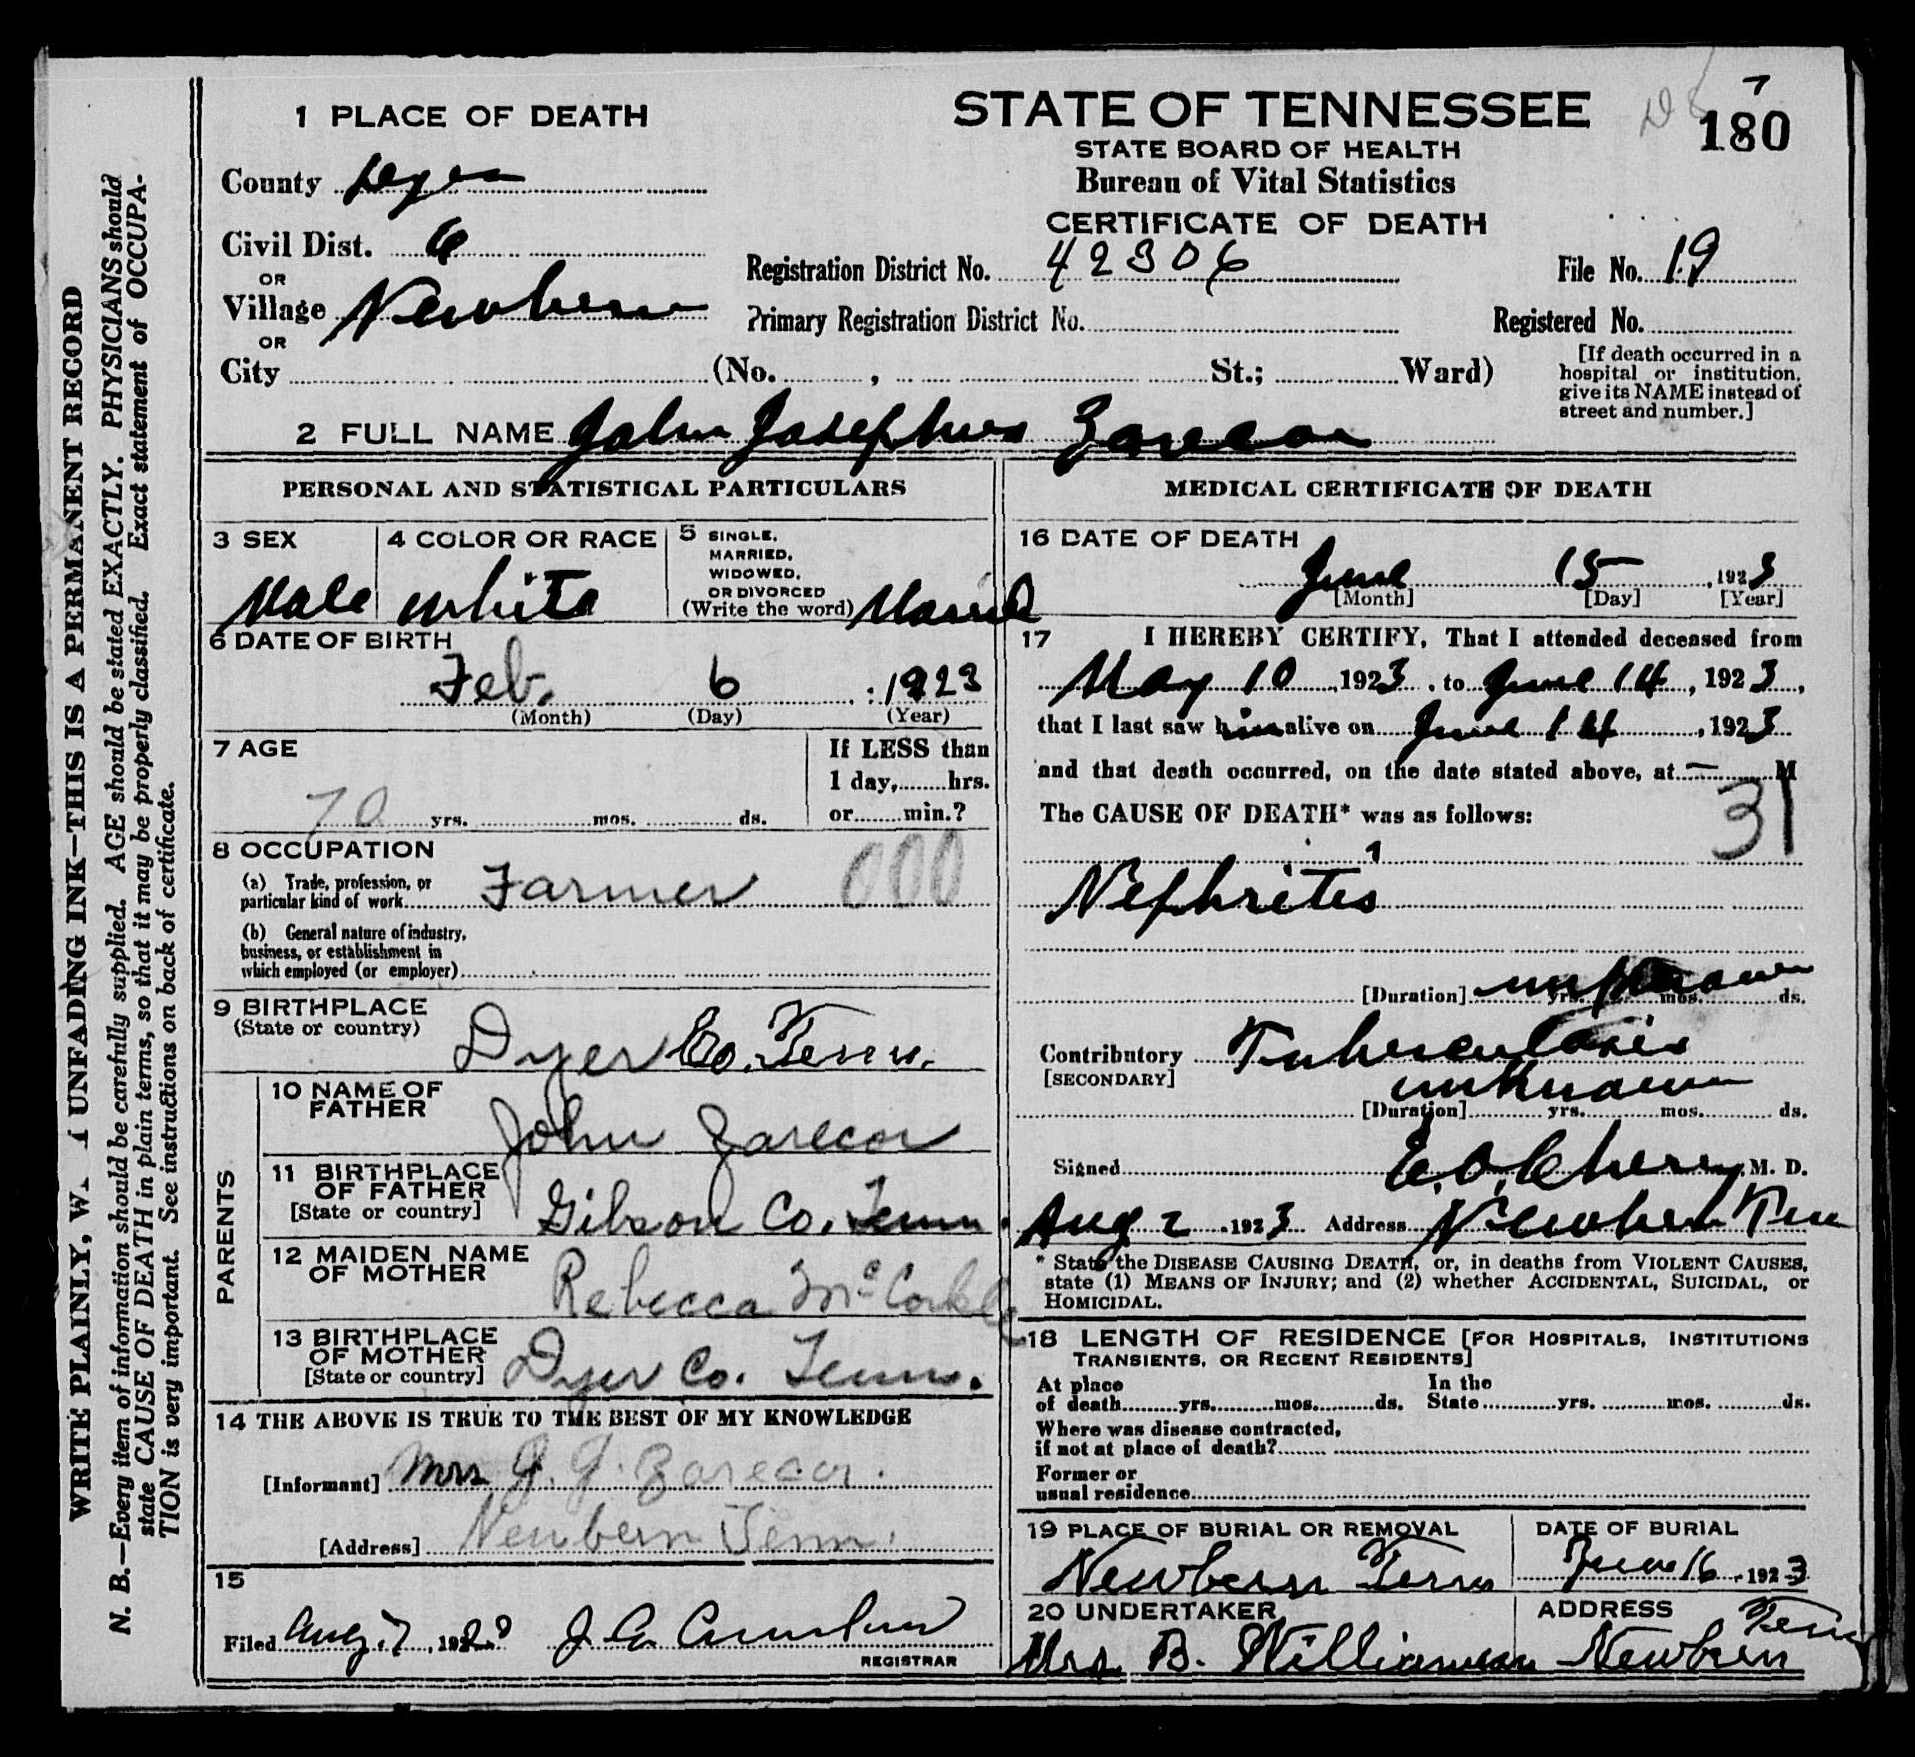 7
180
1 PLACE OF DEATH
STATE OF TENNESSEE
STATE BOARD OF HEALTH
Bureau of Vital Statistics
CERTIFICATE OF DEATH
County Dyer
Civil Dist. 6
OR
Village Newbern
OR
City (No. , St.; Ward)
Registration District No. 42306
File No. 19
Primary Registration District No.
Registered No.
[If death occurred in a
hospital or institution,
give its NAME instead of
street and number.]
2 FULL NAME John Josephus Zarecor
PERSONAL AND STATISTICAL PARTICULARS
3 SEX
Male
4 COLOR OR RACE
White
5 SINGLE,
MARRIED,
WIDOWED,
OR DIVORCED
(Write the word) Married
6 DATE OF BIRTH
Feb. 6 , 1923
(Month) (Day) (Year)
7 AGE
70 yrs. mos. ds.
If LESS than
1 day, hrs.
or min.?
8 OCCUPATION
(a) Trade, profession, or
particular kind of work Farmer 000
(b) General nature of industry,
business, or establishment in
which employed (or employer)
9 BIRTHPLACE
(State or country)
Dyer Co. Tenn.
PARENTS
10 NAME OF
FATHER
John Zarecor
11 BIRTHPLACE
OF FATHER
[State or country]
Gibson Co. Tenn.
12 MAIDEN NAME
OF MOTHER
Rebecca McCorkle
13 BIRTHPLACE
OF MOTHER
[State or country]
Dyer Co. Tenn.
14 THE ABOVE IS TRUE TO THE BEST OF MY KNOWLEDGE
[Informant] Mrs J. J. Zarecor.
[Address] Newbern Tenn.
15
Filed Aug. 7, 1923
REGISTRAR
MEDICAL CERTIFICATE OF DEATH
16 DATE OF DEATH
June 15 , 1923
[Month] [Day] [Year]
17 I HEREBY CERTIFY, That I attended deceased from
May 10 , 1923 , to June 14 , 1923 ,
that I last saw him alive on June 14 , 1923
and that death occurred, on the date stated above, at — M
The CAUSE OF DEATH* was as follows:
31
Nephritis
[Duration] unknown yrs. mos. ds.
Contributory Tuberculosis
[SECONDARY]
unknown
[Duration] yrs. mos. ds.
Signed E. O. Cherry M. D.
Aug 2 , 1923 Address Newbern Ten
* State the DISEASE CAUSING DEATH, or, in deaths from VIOLENT CAUSES,
state (1) MEANS OF INJURY; and (2) whether ACCIDENTAL, SUICIDAL, or
HOMICIDAL.
18 LENGTH OF RESIDENCE [FOR HOSPITALS, INSTITUTIONS
TRANSIENTS, OR RECENT RESIDENTS]
At place
of death yrs. mos. ds.
In the
State yrs. mos. ds.
Where was disease contracted,
if not at place of death?
Former or
usual residence
19 PLACE OF BURIAL OR REMOVAL
Newbern Tenn
DATE OF BURIAL
June 16 , 1923
20 UNDERTAKER
Mrs. B. Williamson
ADDRESS
Newbern Tenn
WRITE PLAINLY, UNFADING INK—THIS IS A PERMANENT RECORD
N. B.—Every item of information should be carefully supplied. AGE should be stated EXACTLY. PHYSICIANS should
state CAUSE OF DEATH in plain terms, so that it may be properly classified. Exact statement of OCCUPA-
TION is very important. See instructions on back of certificate.